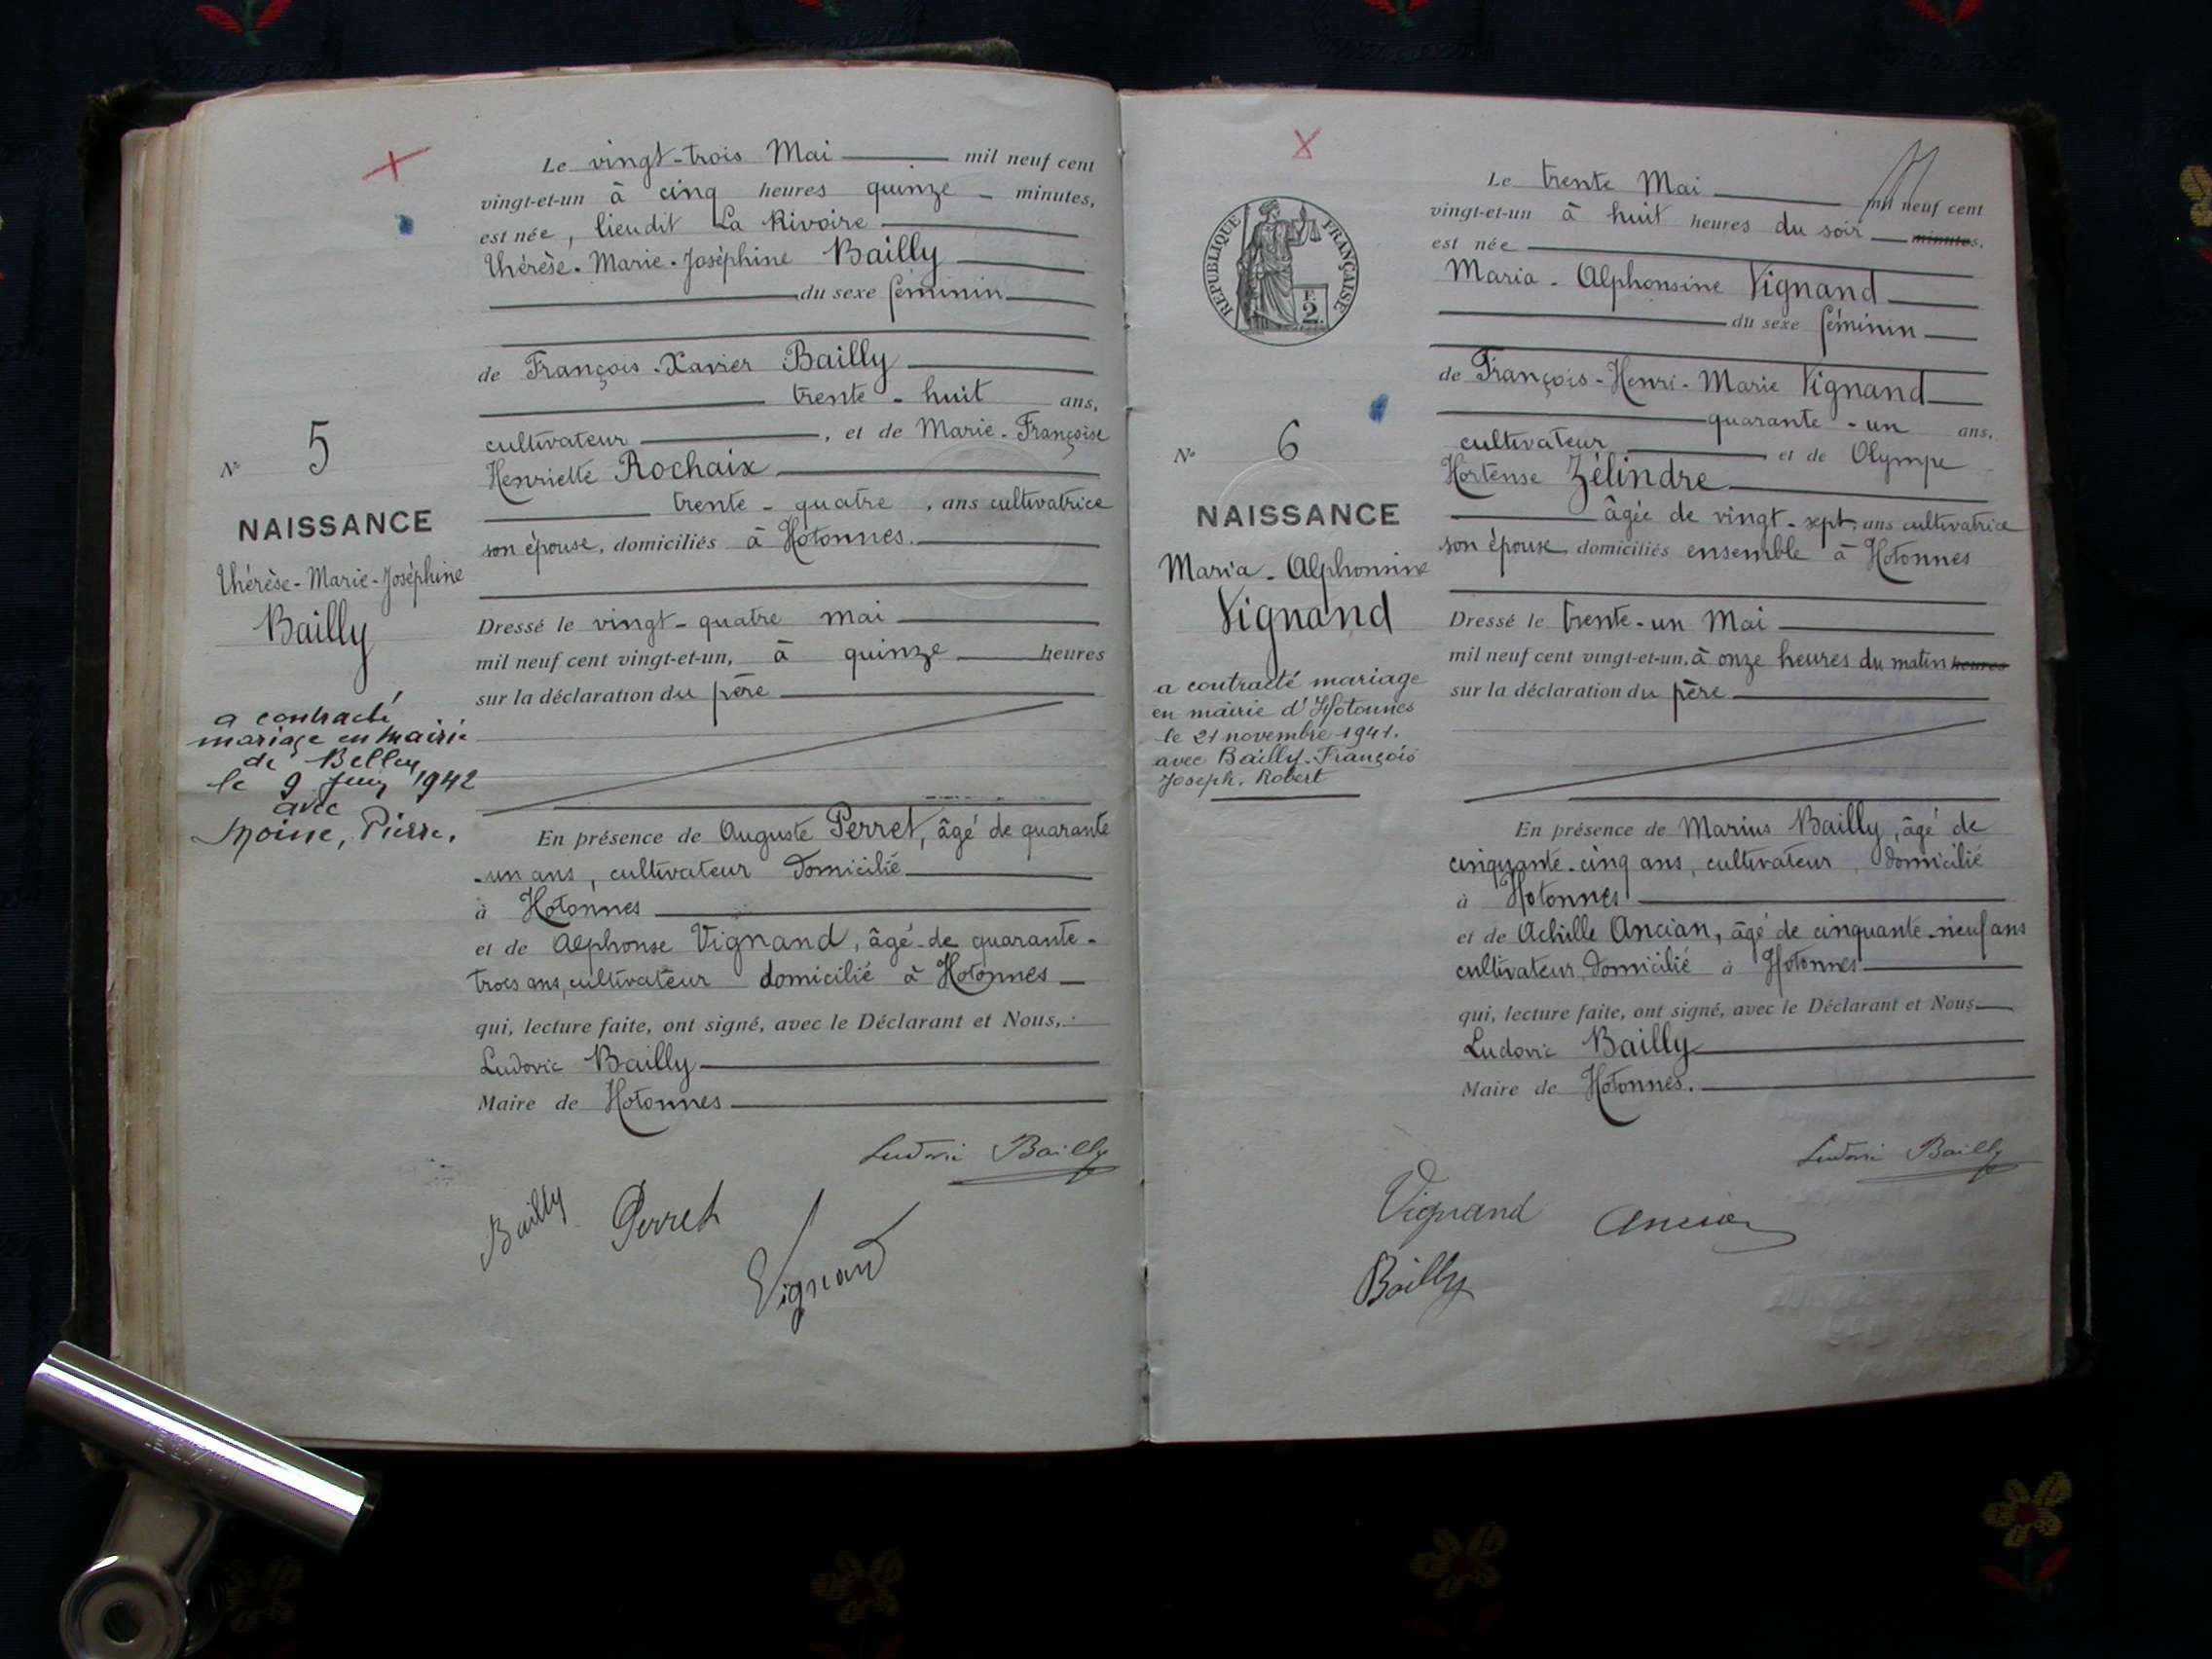 Le vingt-trois Mai mil neuf cent
vingt-et-un à cinq heures quinze minutes,
est née, lieudit La Rivoire
Thérèse-Marie-Joséphine Bailly
du sexe féminin
de François-Xavier Bailly
trente-huit ans,
cultivateur, et de Marie-Françoise
Henriette Rochaix
trente-quatre, ans cultivatrice
son épouse, domiciliés à Hotonnes.
Dressé le vingt-quatre mai
mil neuf cent vingt-et-un, à quinze heures
sur la déclaration du père
En présence de Auguste Perret, âgé de quarante
-un ans, cultivateur domicilié
à Hotonnes
et de Alphonse Vignand, âgé de quarante-
trois ans, cultivateur domicilié à Hotonnes
qui, lecture faite, ont signé, avec le Déclarant et Nous,
Ludovic Bailly
Maire de Hotonnes
Ludovic Bailly
Bailly Perret
Vignand
N° 5
NAISSANCE
Thérèse-Marie-Joséphine
Bailly
a contracté
mariage en mairie
de Belley
le 9 Juin 1942
avec
Moine, Pierre.
REPUBLIQUE FRANÇAISE
F.
2.
N° 6
NAISSANCE
Maria-Alphonsine
Vignand
a contracté mariage
en mairie d'Hotonnes
le 21 novembre 1941.
avec Bailly-François
Joseph. Robert
Le trente Mai mil neuf cent
vingt-et-un à huit heures du soir minutes,
est née
Maria-Alphonsine Vignand
du sexe féminin
de François-Henri-Marie Vignand
quarante-un ans,
cultivateur et de Olympe
Hortense Zélindre
âgée de vingt-sept, ans cultivatrice
son épouse domiciliés ensemble à Hotonnes
Dressé le trente-un Mai
mil neuf cent vingt-et-un, à onze heures du matin heures
sur la déclaration du père
En présence de Marius Bailly, âgé de
cinquante-cinq ans, cultivateur, domicilié
à Hotonnes
et de Achille Ancian, âgé de cinquante-neuf ans
cultivateur, domicilié à Hotonnes
qui, lecture faite, ont signé, avec le Déclarant et Nous
Ludovic Bailly
Maire de Hotonnes.
Ludovic Bailly
Vignand Ancian
Bailly